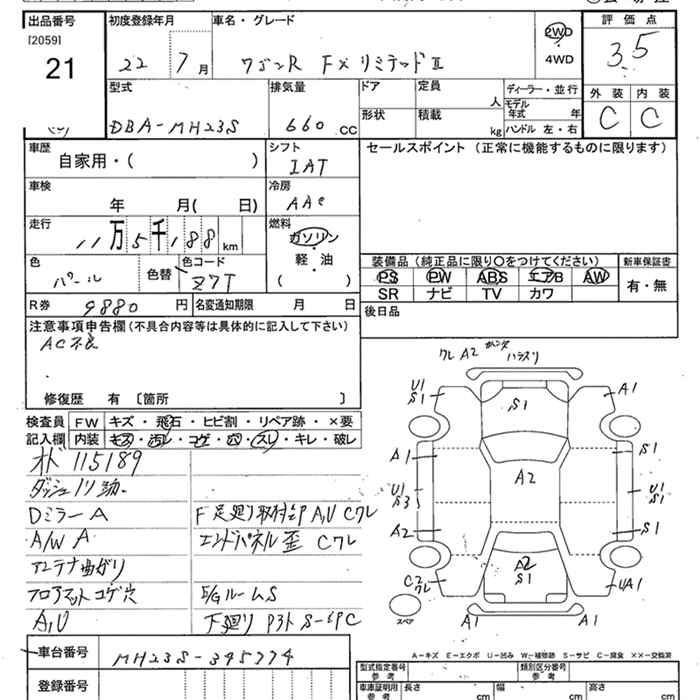 出品番号 初度登録年月 車名・グレード 評価点
[2059] 21 22 7月 ワゴンR FXリミテッドⅡ 2WD 4WD 3.5
型式 排気量 ドア 定員 人 ディーラー・並行 外装 内装
DBA-MH23S 660 CC 形状 積載 kg モデル年式 年 ハンドル 左・右 C C
車歴 シフト セールスポイント (正常に機能するものに限ります)
自家用・( ) IAT
車検 冷房
年 月( 日) AAC
走行 燃料
11万5千188km ガソリン
軽・油
( )
色 色替 色コード 装備品 (純正品に限り○をつけてください) 新車保証書
パール Z7T PS PW ABS エアB AW 有・無
SR ナビ TV カワ
R券 9880円 名変通知期限 月 日 後日品
注意事項申告欄(不具合内容等は具体的に記入して下さい)
AC不良
修復歴 有 〔箇所 〕
検査員 FW キズ・飛石・ヒビ割・リペア跡・×要
記入欄 内装 キズ・汚レ・コゲ・凹・スレ・キレ・破レ
115189
Dミラー A F足廻り取付部 A,U Cワレ
A/W A エンドパネル歪 Cワレ
アンテナ曲がり
フロアマットコゲ穴 E/GルームS
A,U 下廻り P3ト S-6PC
ワレ A2
U1 S1 S1 A1
A1 S1
A2
U1 S3 U1 S1
A2 S1
A2 S1
C2 ワレ UA1
スペア A1 A1
A-キズ E-エクボ U-凹み W-補修跡 S-サビ C-腐食 XX-交換済
車台番号 MH23S-345774
型式指定番号 参考 類別区分番号 参考
登録番号 車庫証明用 参考 長さ cm 幅 cm 高さ cm